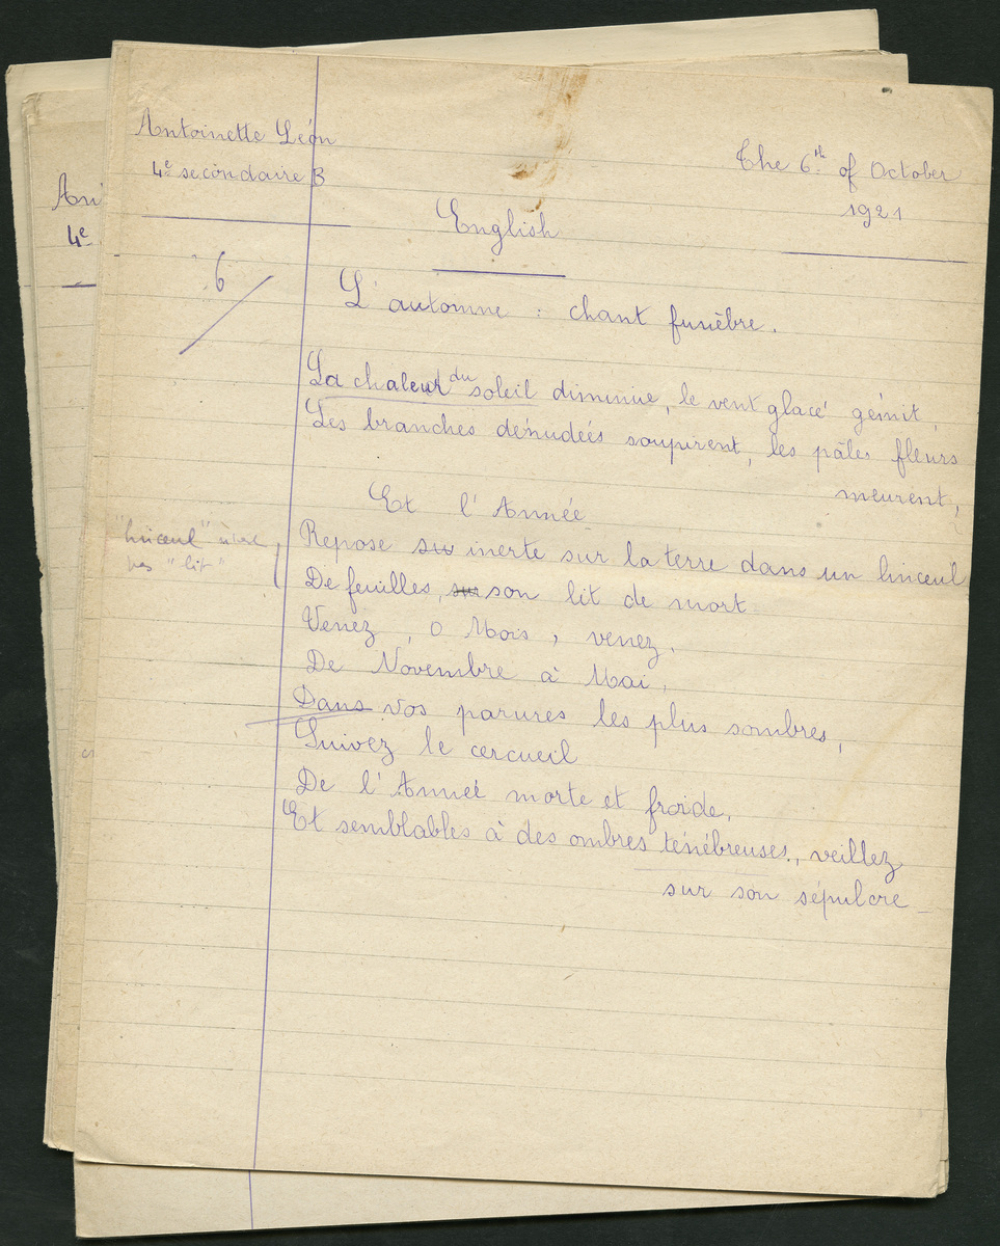 Antoinette Léon
4e secondaire B
The 6th. of October
1921
English
6
L'automne : chant funèbre.
La chaleur du soleil diminue, le vent glacé gémit,
Les branches dénudées soupirent, les pâles fleurs
meurent,
Et l'Année
Repose inerte sur la terre dans un linceul
De feuilles, sur son lit de mort
Venez, O Mois, venez,
De Novembre à Mai,
Dans vos parures les plus sombres,
Suivez le cercueil
De l'Année morte et froide,
Et semblables à des ombres ténébreuses, veillez
sur son sépulcre
"linceul"
pas "lit"
Ant
4e